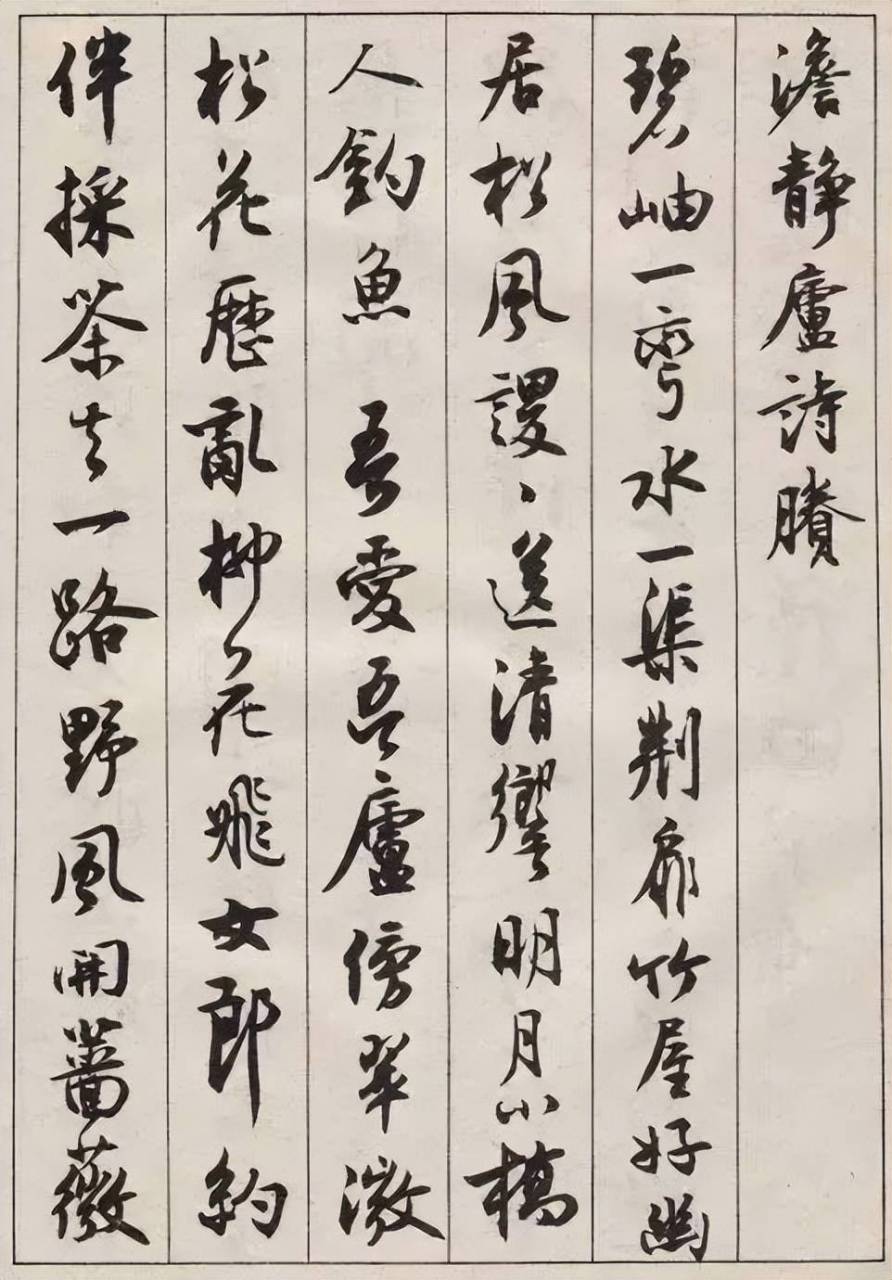 澹靜廬詩賸
碧岫一彎水一渠荆扉竹屋好幽
居松風謖〻送清響明月小橋
人釣魚 吾愛吾廬傍翠微
松花歷亂柳〻花飛女郎約
伴採茶去一路野風開薔薇